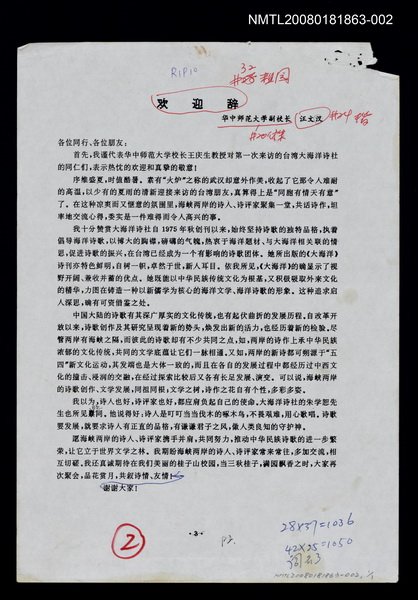 NMTL20080181863-002
R1P10
32
欢迎辞
华中师范大学副校长 汪文汉
各位同行、各位朋友：
首先，我谨代表华中师范大学校长王庆生教授对第一次来访的台湾大海洋诗社
的同仁们，表示热忱的欢迎和真挚的敬意！
序维盛夏，时值酷暑。素有“大炉”之称的武汉却意外作美，收起了它那令人难耐
的高温，以少有的夏雨的清新迎接来访的台湾朋友，真算得上是“同胞有情天有意”
了。在这种凉爽而又惬意的氛围里，海峡两岸的诗人、诗评家聚集一堂，共话诗作，坦
率地交流心得，委实是一件难得而令人高兴的事。
我十分赞赏大海洋诗社自1975年秋创刊以来，始终坚持诗歌的独特品格，执着
倡导海洋诗歌，以博大的胸襟，磅礴的气魄，热衷于海洋题材、与大海洋相关联的情
思，促进诗歌的振兴，在台湾已经成为一个有影响的诗歌团体。她所出版的《大海洋》
诗刊亦特色鲜明，自树一帜，卓然于世，新人耳目。依我所见，《大海洋》的确显示了视
野开阔、兼收并蓄的优点。她既能以中华民族传统文化为根基，又积极吸取外来文化
的精华，力图在铸造一种以新儒学为核心的海洋文学、海洋诗歌的形象。这种追求启
人深思，确有可资借鉴之处。
中国大陆的诗歌有其深广厚实的文化传统，也有起伏曲折的发展历程。自改革开
放以来，诗歌创作及其研究呈现着新的势头，焕发出新的活力，也经历着新的检验。尽
管两岸有海峡之隔，而彼此的诗歌却有不少共同之点，如，两岸的诗作上承中华民族
浓郁的文化传统，共同的文学底蕴让它们一脉相通。又如，两岸的新诗都可朔源于“五
四”新文化运动，其发端也是大体一致的，而且在各自的发展过程中都经历过中西文
化的撞击、浸润的交融，在经过探索比较后又各有长足发展、演变。可以说，海峡两岸
的诗歌创作、文学发展，同祖同根，文学之树，诗作之花自有个性，多彩多姿。
我以为，诗人也好，诗评家也好，都应肩负起自己的使命。大海洋诗社的朱学恕先
生也所见略同。他说得好：诗人是叮叮当当伐木的啄木鸟，不畏艰难，用心歌唱。诗歌
要发展，就要求诗人有正直的品格，有谦谦君子之风，做人类良知的守护神。
愿海峡两岸的诗人、诗评家携手并肩，共同努力，推动中华民族诗歌的进一步繁
荣，让它立于世界文学之林。我期盼海峡两岸的诗人、诗评家常来常往，多加交流，相
互切磋。我还真诚期待在我们美丽的桂子山校园，当三秋桂子，满园飘香之时，大家再
次聚会，品花赏月，共叙诗情、友情！
谢谢大家！
·3·
P3.
2
28×37=1036
42×25=1050
NMTL20080181863-002, 1/1